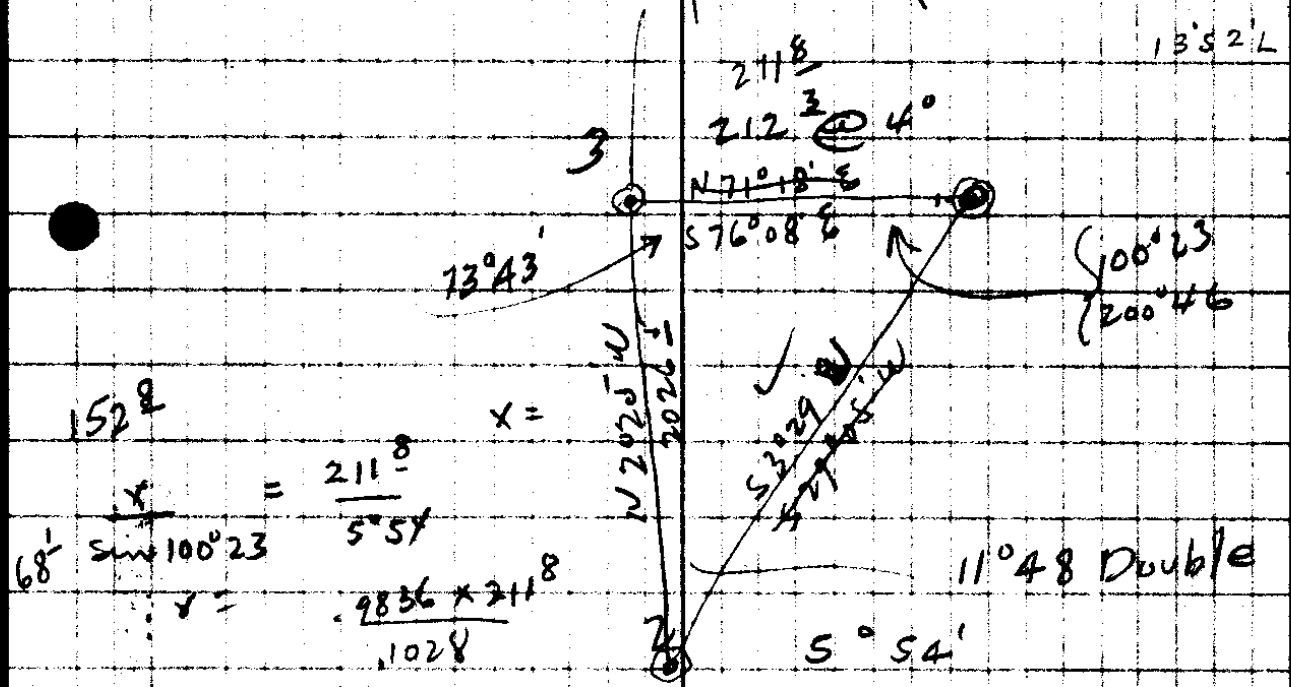 13'S 2'L
211⁸
212³ @ 4°
3
N 71° 18' E
S 76° 08' E
73°43'
100°23
200°46
N 2°25' W
2026 ±
S 3°29' W
152⁸
X =
x / Sin 100°23 = 211⁸ / 5°54
68'
x = .9836 x 211⁸ / .1028
11°48 Double
2
5° 54'